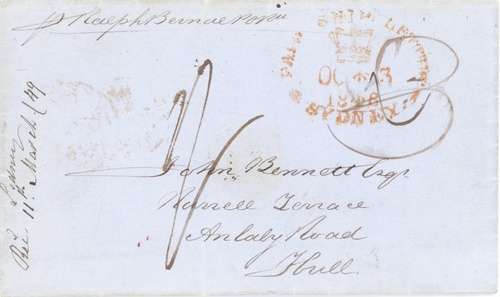 p Ralph Bernal
PAID SHIP LETTER
OC 3
1848
SYDNEY
3
John Bennett Esqr
Terrace
Anlaby Road
Hull
Rec
11th March /49